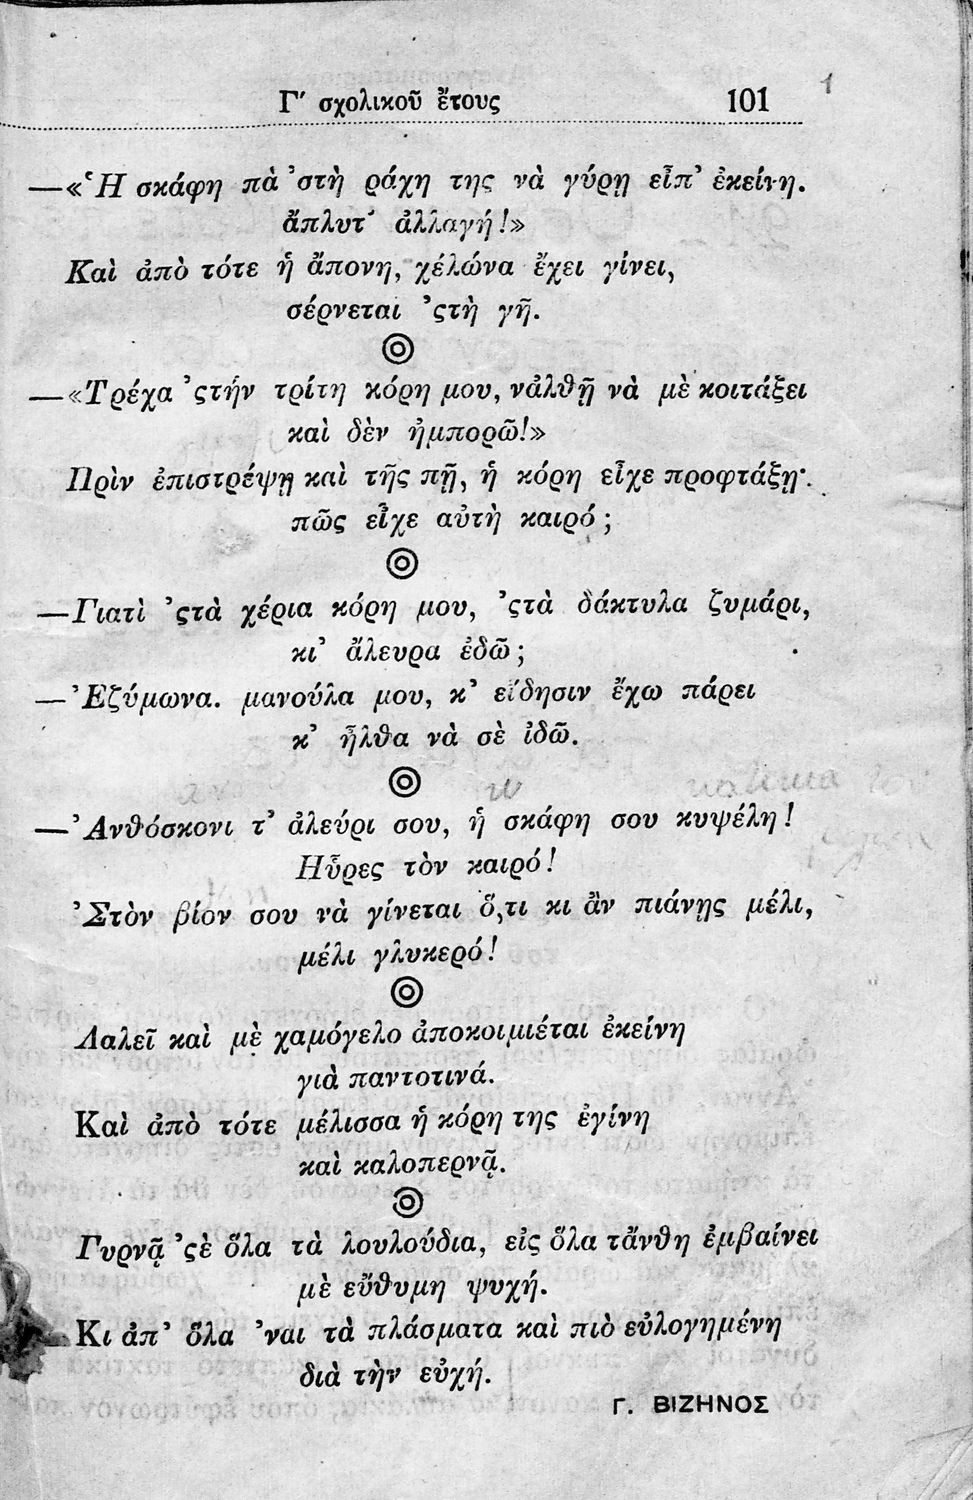 Γ′ σχολικοῦ ἔτους 101
1
—«Ἡ σκάφη πὰ 'στὴ ράχη της νὰ γύρῃ εἶπ' ἐκείνη.
ἄπλυτ' ἀλλαγή!»
Καὶ ἀπὸ τότε ἡ ἄπονη, χέλώνα ἔχει γίνει,
σέρνεται 'ςτὴ γῆ.
—«Τρέχα 'ςτήν τρίτη κόρη μου, νἀλθῇ νὰ μὲ κοιτάξει
καὶ δὲν ἠμπορῶ!»
Πρὶν ἐπιστρέψῃ καὶ τῆς πῇ, ἡ κόρη εἶχε προφτάξῃ·
πῶς εἶχε αὐτὴ καιρό;
—Γιατὶ 'ςτὰ χέρια κόρη μου, 'ςτὰ δάκτυλα ζυμάρι,
κι' ἄλευρα ἐδῶ;
—'Εζύμωνα. μανούλα μου, κ' εἴδησιν ἔχω πάρει
κ' ἦλθα νὰ σὲ ἰδῶ.
—'Ανθόσκονι τ' ἀλεύρι σου, ἡ σκάφη σου κυψέλη!
Ηὗρες τὸν καιρό!
'Στὸν βίον σου νὰ γίνεται ὅ,τι κι ἂν πιάνῃς μέλι,
μέλι γλυκερό!
Λαλεῖ καὶ μὲ χαμόγελο ἀποκοιμιέται ἐκείνη
γιὰ παντοτινά.
Καὶ ἀπὸ τότε μέλισσα ἡ κόρη της ἐγίνη
καὶ καλοπερνᾷ.
Γυρνᾷ 'ςὲ ὅλα τὰ λουλούδια, εἰς ὅλα τἄνθη ἐμβαίνει
μὲ εὔθυμη ψυχή.
Κι ἀπ' ὅλα 'ναι τὰ πλάσματα καὶ πιὸ εὐλογημένη
διὰ τὴν εὐχή.
Γ. ΒΙΖΗΝΟΣ